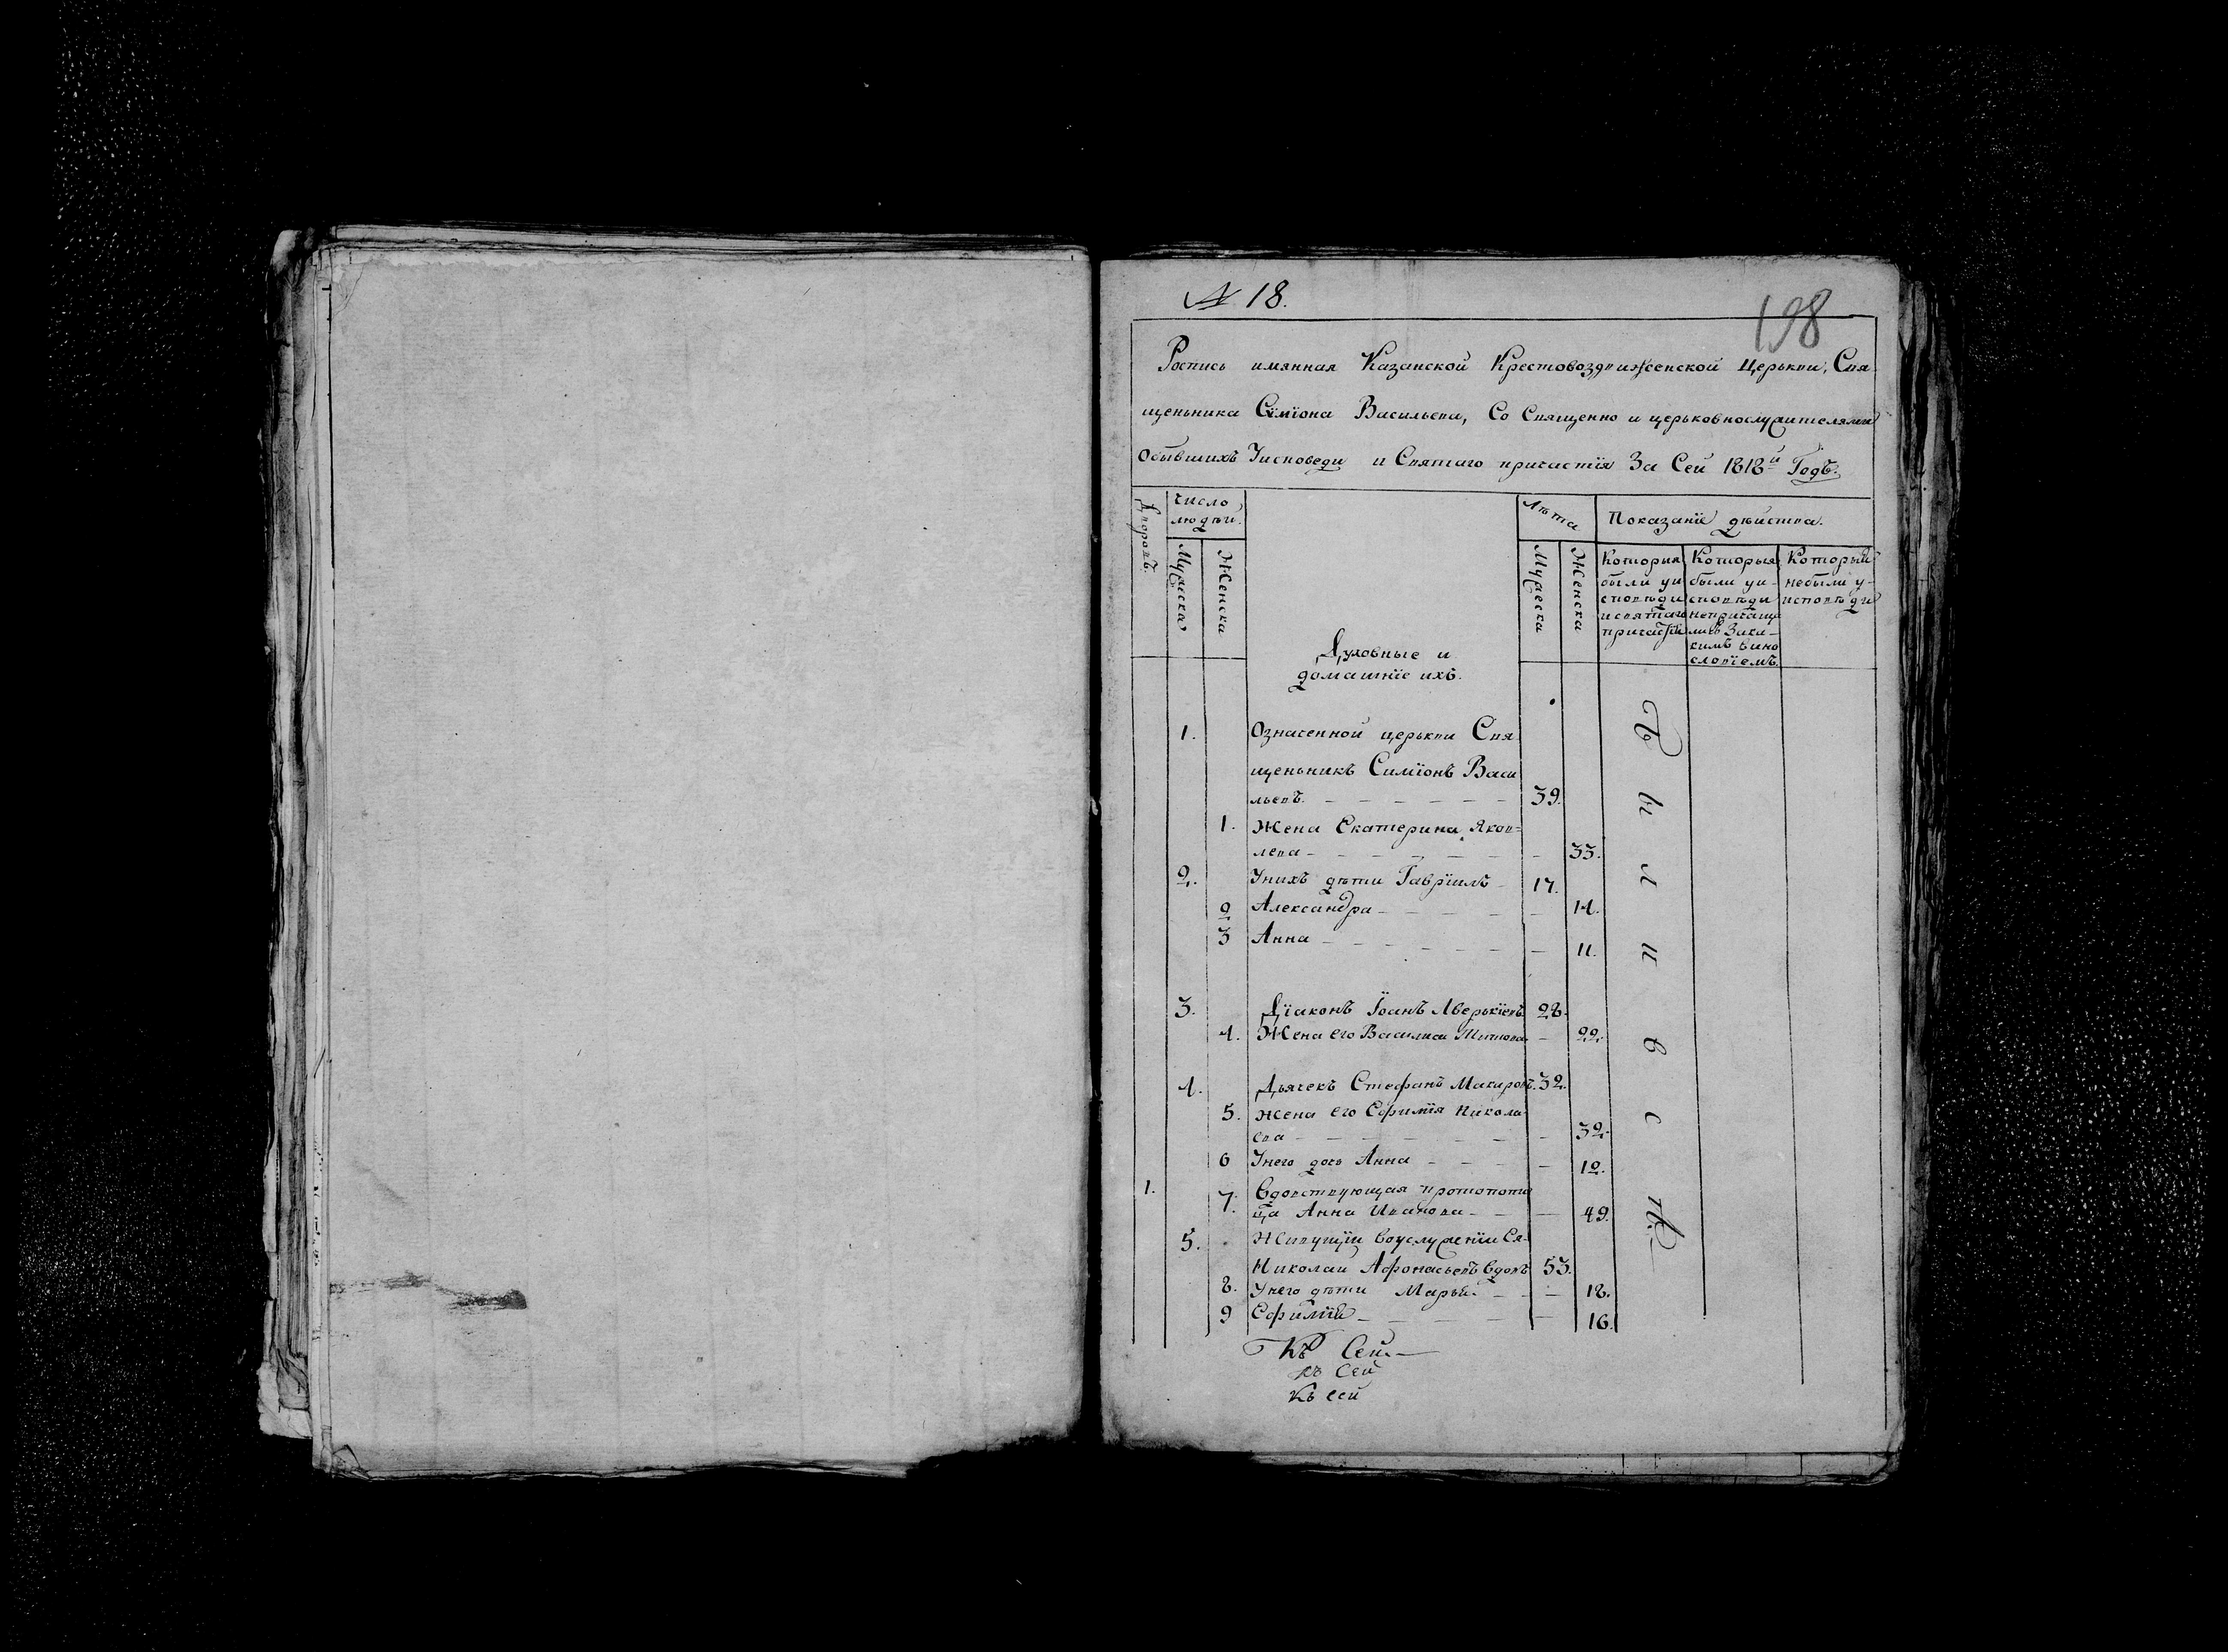 № 18.
198
Роспись имянная Казанской Крестовоздвиженской Церькви, Свя
щеньника Сѵмїона Васильева, Со Священно и церьковнослужителями
Обывшихъ Уисповеди и Святаго причастїя За Сей 1818й Годъ.
Дворовъ.
число
людѣй.
Мужеска
Женска
Духовные и
домашнїе ихъ.
Лѣта
Мужеска
Женска
Показанїе дѣйства.
Которыя
были уи
споведи
и святаго
причастїя
Которыя
были уи-
споведи
непричащ
лись Зака-
кимъ вино
словїемъ.
Которыи
небыли у-
исповѣди
1. Означенной церькви Свя
щеньникъ Симїонъ Васи
льевъ. 39.
1. Жена Екатерина Яков=
лева 33.
2. Унихъ дѣти Гаврїилъ 17.
2 Александра 14.
3 Анна 11.
3. Дїаконъ Їоанъ Аверькїевъ 28.
4. Жена его Василиса Титова 22.
4. Дьячекъ Стефанъ Макаровъ. 32.
5. Жена его Ефимїя Никола
ева 32.
6 Унего дочь Анна 12.
1. 7. Вдовствующая протопопи
ца Анна Иванова 49.
5. Живущїи воуслуженїи Ея
Николаи Афонасьевъ вдовъ 53.
8. Унего дѣти Марья 18.
9 Ефимїя 16.
Были всѣ
Къ Сей
къ Сей
Къ сей